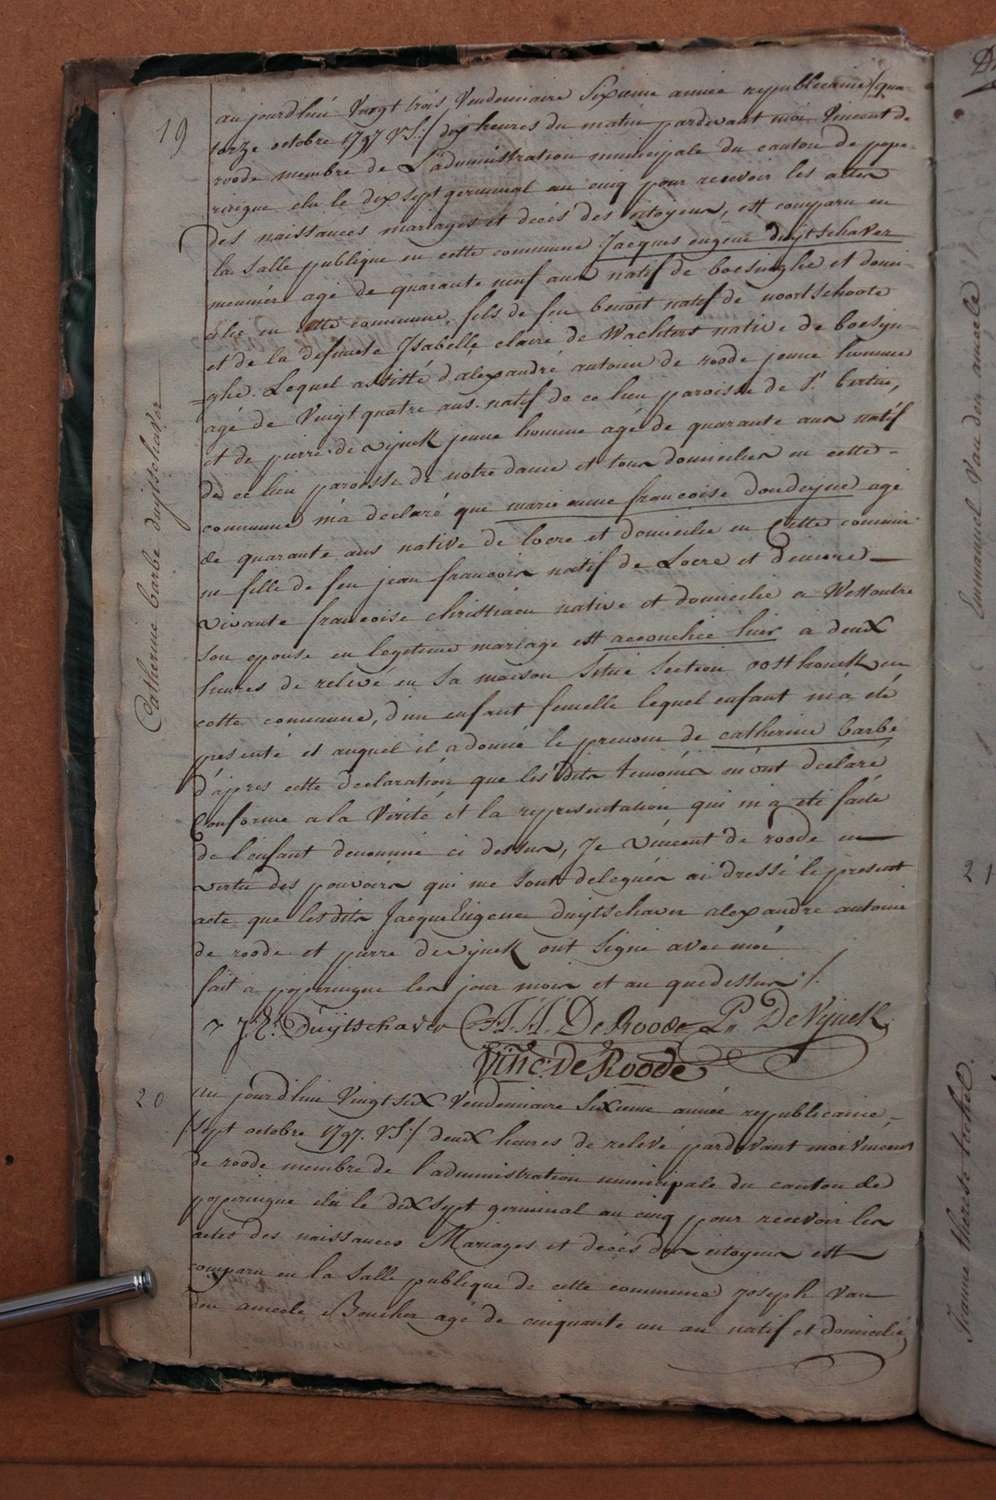 19
Catherine barbe duijtschaver
aujourdhui Vingt trois Vendemiaire Sixieme année republicaine /qua-
torze octobre 1797 VS:/ dix heures du matin pardevant moi Vincent de
roode membre de L'administration municipale du canton de pope-
ringue elu le dix sept germinal an cinq pour recevoir les actes
des naissances mariages et decés des citoyens, est comparu en
la salle publique en cette commune Jacques eugene duijtschaver
meunier agé de quarante neuf ans natif de boesinghe et domi-
cilié en cette commune, fils de feu benoit natif de noortschoote
et de la defunte Isabelle claire de Wachter native de boesyn-
ghe. Lequel assisté d'alexandre antoine de roode jeune homme
agé de Vingt quatre ans natif de ce lieu paroisse de St bertin,
et de pierre de wijnck jeune homme agé de quarante ans natif
de ce lieu paroisse de notre dame et tous domiciliés en cette-
commune m'a declaré que marie anne francoise doudeyne agé
de quarante ans native de locre et domicilie en cette commu-
ne fille de feu jean francois natif de Locre et d'encore
vivante francoise christiaen native et domicilie a Westoutre
son epouse en legitime mariage est accouchée hier a deux
heures de relevé en sa maison Situé Section oosthouck en
cette commune, d'un enfant femelle lequel enfant m'a eté
presenté et auquel il a donné le prenom de catherine barbe
d'apres cette declaration que lesdits temoins m'ont declaré
Conforme a la Vérité et la representation qui m'a eté faite
de l'enfant denommé ci dessus, Je vincent de roode en
vertu des pouvoirs qui me sont delegués ai dressé le present
acte que lesdits Jacque Eugene duijtschaver alexandre antoine
de roode et pierre dewijnck ont signé avec moi
fait a poperingue les jour mois et an que dessus /.
J. E. Duijtschaver A. A. DeRoode P. DeWijnck
Vinc: De Roode
20
Au jourd'hui Vingt six Vendemiaire Sixieme année republicaine
/sept octobre 1797. VS:/ deux heures de relevé pardevant moi Vincent
de roode membre de l'administration municipale du canton de
poperingue elu le dix sept germinal an cinq pour recevoir les
actes des naissances Mariages et decés des citoyens est
comparu en la salle publique de cette commune joseph Van
den ameele Boucher agé de cinquante un an natif et domicilié
Emmanuel Vanden ameele
21
Jeanne therese